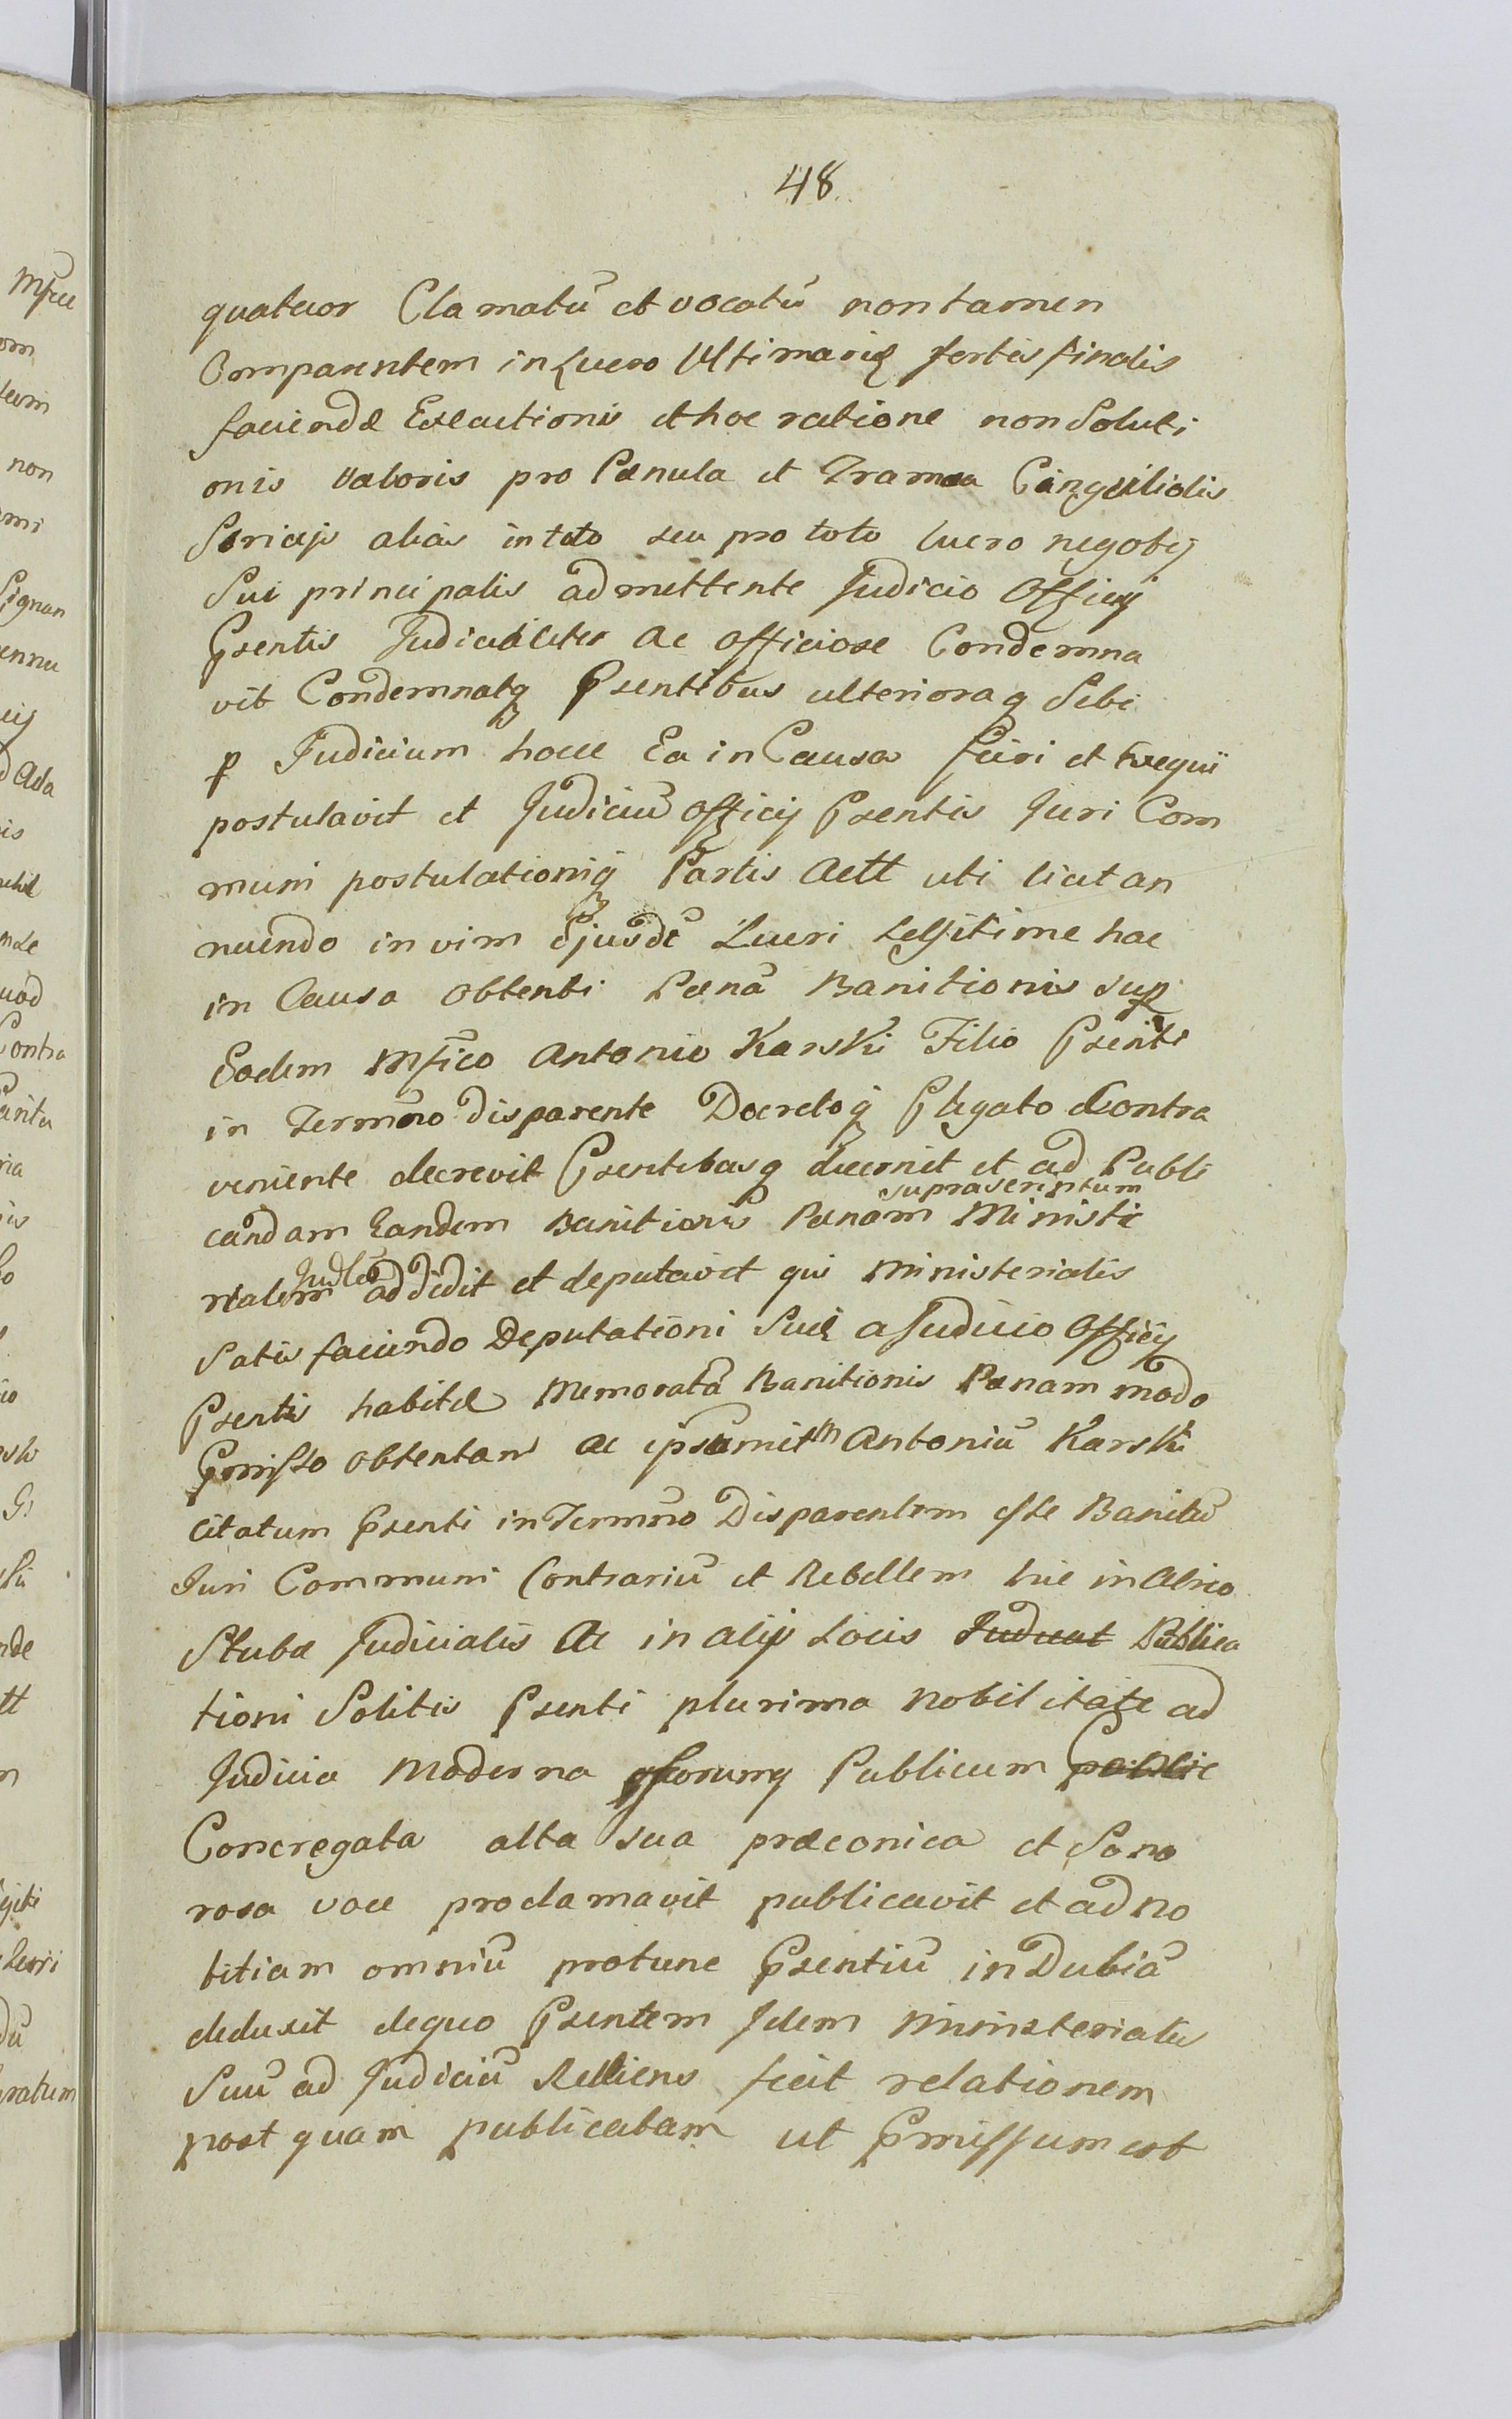 48
quatuor Clamatū et vocatū non tamen
Comparentem in Lucro Ultimariæ sortis finalis
faciendæ Exēcutionis et hoc ratione non Soluti
onis valoris pro Pænula et Trama Cinguli alis
Sericeis alias in toto seu pro toto lucro negotij
Sui principalis admittente Judicio Officij
Psentis Judicialiter Ac officiose Condemna
vit Condemnatq Psentibus ulterioraq Sibi
p Judicium hocce Ea in Causa fieri et Exequi
postulavit et Judiciū Officij Psentis Juri Com
muni postulationiq Partis Actt uti licit an
nuendo in vim Ejusdē Lucri Legitime hac
in Causa Obtenti Pænā Banitionis sup
Eodem Mfico Antonio Karski Filio Psenti
in Termino disparente Decretoq Plegato Contra
veniente decrevit Psentibusq decernit et ad Publi
candam Eandem Banitionis Pænam suprascriptum Ministe
rialem Judlē addidit et deputavit qui Ministerialis
Satisfaciendo Deputationi Suæ a Judicio Officij
Psentis habitæ Memoratā Banitionis Pænam modo
Pmisso Obtentam Ac ipsummet M Antoniū Karski
Citatum Psenti in Termino Disparentem esse Banitū
Juri Communi Contrariū et Rebellem hic in Atrio
Stubæ Judicialis Ac in alijs Locis Judicat Publica
tioni Solitis Psenti plurima Nobilitate ad
Judicia Moderna forumq Publicum Public
Concregata alta sua præconica et Sono
rosa voce proclamavit publicavit et ad no
titiam omniū protunc Psentiū inDubiā
deduxit de quo Psentem Idem Ministerialis
Suū ad Judiciū Rediens fecit relationem
post quam publicatam ut Pmissum est